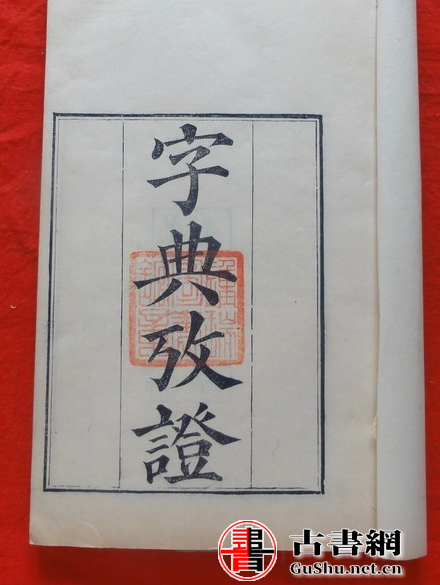 字典攷證
書
古書網
GuShu.net.cn